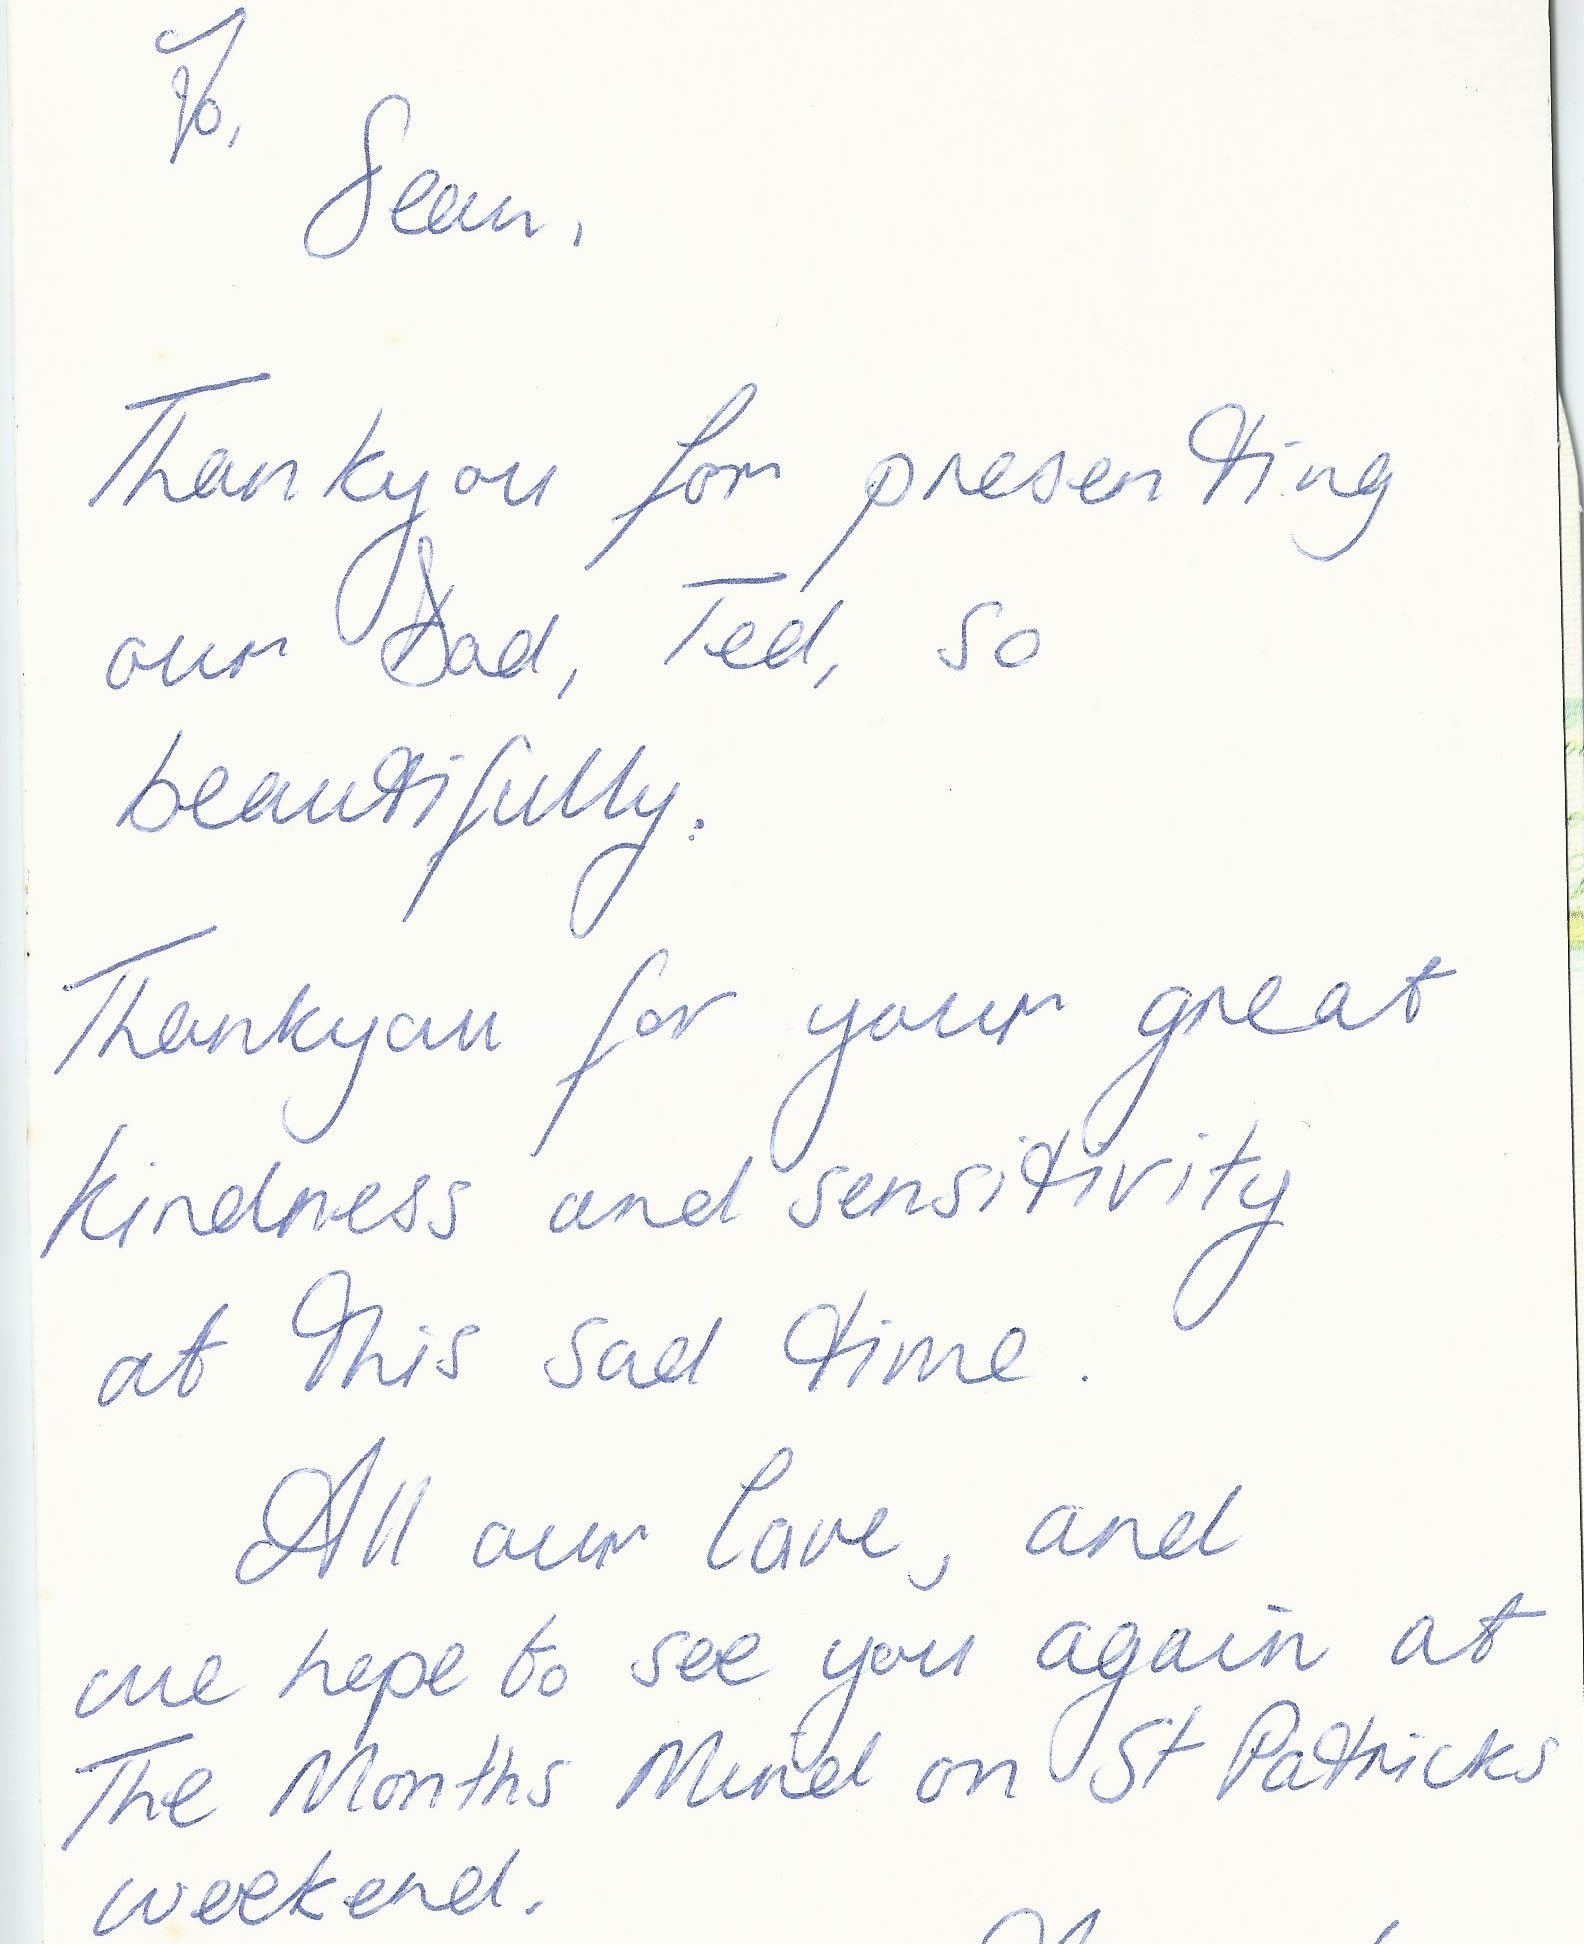 To,
Sean,
Thankyou for presenting
our Dad, Ted, so
beautifully.
Thankyou for your great
kindness and sensitivity
at this sad time.
All our love, and
we hope to see you again at
The Months Mind on St Patricks
weekend.